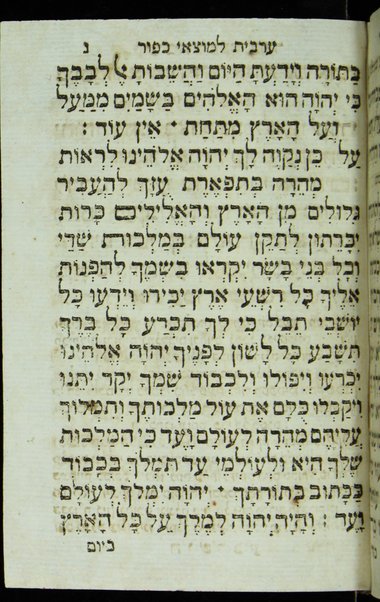 ערבית למוצאי כפור נ
בַּתּוֹרָה וְיָדַעְתָּ הַיּוֹם וַהֲשֵׁבוֹתָ אֶל לְבָבֶךָ
כִּי יְהוָה הוּא הָאֱלֹהִים בַּשָּׁמַיִם מִמַּעַל
וְעַל הָאָרֶץ מִתָּחַת · אֵין עוֹד :
עַל כֵּן נְקַוֶּה לָךְ יְהוָה אֱלֹהֵינוּ לִרְאוֹת
מְהֵרָה בְּתִפְאֶרֶת עֻזָּךְ לְהַעֲבִיר
גִּלּוּלִים מִן הָאָרֶץ וְהָאֱלִילִים כָּרוֹת
יִכָּרֵתוּן לְתַקֵּן עוֹלָם בְּמַלְכוּת שַׁדַּי
וְכָל בְּנֵי בָשָׂר יִקְרְאוּ בִשְׁמֶךָ לְהַפְנוֹת
אֵלֶיךָ כָּל רִשְׁעֵי אָרֶץ יַכִּירוּ וְיֵדְעוּ כָּל
יוֹשְׁבֵי תֵבֵל כִּי לְךָ תִּכְרַע כָּל בֶּרֶךְ
תִּשָּׁבַע כָּל לָשׁוֹן לְפָנֶיךָ יְהוָה אֱלֹהֵינוּ
יִכְרְעוּ וְיִפּוֹלוּ וְלִכְבוֹד שִׁמְךָ יְקָר יִתֵּנוּ
וִיקַבְּלוּ כֻלָּם אֶת עוֹל מַלְכוּתֶךָ וְתִמְלוֹךְ
עֲלֵיהֶם מְהֵרָה לְעוֹלָם וָעֶד כִּי הַמַּלְכוּת
שֶׁלְּךָ הִיא וּלְעוֹלְמֵי עַד תִּמְלֹךְ בְּכָבוֹד
כַּכָּתוּב בְּתוֹרָתֶךָ · יְהוָה יִמְלֹךְ לְעוֹלָם
וָעֶד : וְהָיָה יְהוָה לְמֶלֶךְ עַל כָּל הָאָרֶץ
ביום